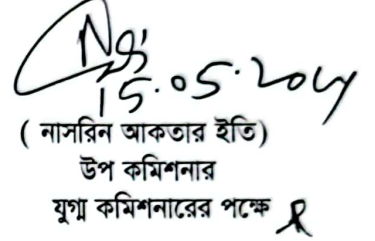 15.05.2024
( নাসরিন আকতার ইতি)
উপ কমিশনার
যুগ্ম কমিশনারের পক্ষে